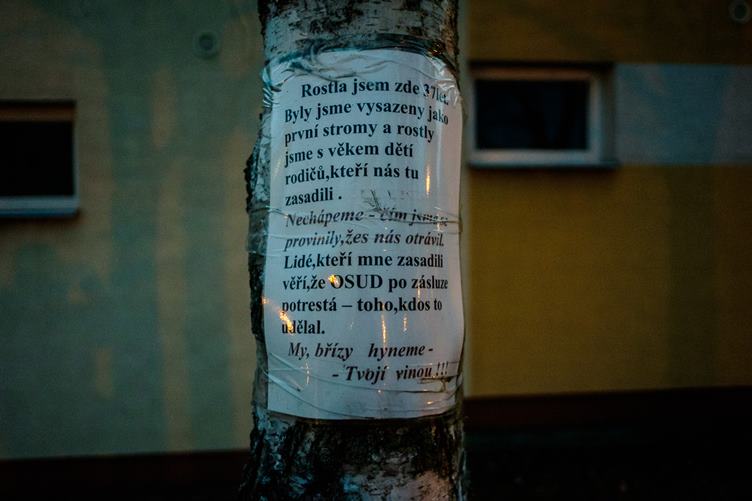 Rostla jsem zde 37let.
Byly jsme vysazeny jako
první stromy a rostly
jsme s věkem dětí
rodičů,kteří nás tu
zasadili .
Nechápeme - čím jsme se
provinily,žes nás otrávil.
Lidé,kteří mne zasadili
věří,že OSUD po zásluze
potrestá – toho,kdos to
udělal.
My, břízy hyneme -
- Tvojí vinou !!!